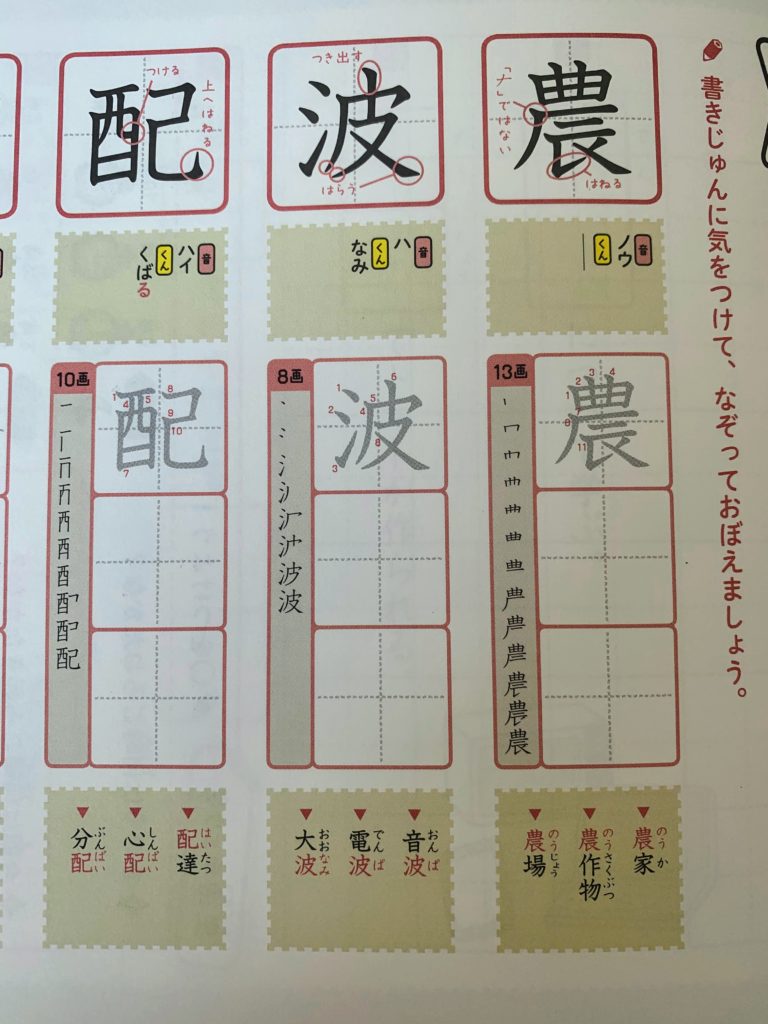 書きじゅんに気をつけて、なぞっておぼえましょう。
農
「ナ」ではない
はねる
音
ノウ
くん
―
13画
農
1
2
3
4
7
8
11
農
農家
のうか
農作物
のうさくぶつ
農場
のうじょう
波
つき出す
はらう
音
ハ
くん
なみ
8画
波
1
2
3
4
5
6
8
波
音波
おんぱ
電波
でんぱ
大波
おおなみ
配
つける
上へはねる
音
ハイ
くん
くばる
10画
配
1
4
5
7
8
9
10
配
配達
はいたつ
心配
しんぱい
分配
ぶんぱい